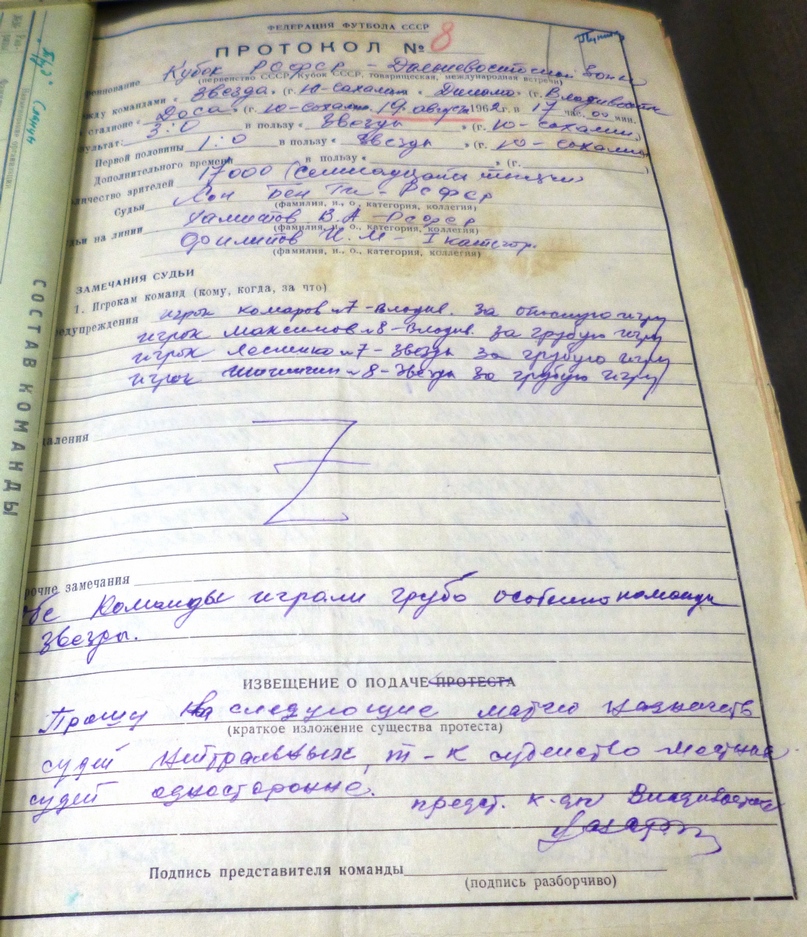 ФЕДЕРАЦИЯ ФУТБОЛА СССР
ПРОТОКОЛ № 8
Кубок РСФСР – Дальневосточной Зоны
(первенство СССР, Кубок СССР, товарищеская, международная встреча)
между командами « Звезда » (г. Ю-Сахалин « Динамо » (г. Владивосток
стадионе « Доса » (г. Ю-Сахалин 19 август 1962 г. в 17 час. 00 мин.
3:0 в пользу « Звезды » (г. Ю-Сахалин)
Первой половины 1:0 в пользу « Звезды » (г. Ю-Сахалин)
Дополнительного времени в пользу « » (г. )
количество зрителей 17000 (Семнадцать тысяч)
Судья Лон Бен Ти – РСФСР
(фамилия, и., о., категория, коллегия)
судьи на линии В.А – РСФСР
(фамилия, и., о., категория, коллегия)
Филипов И.М – I категор.
(фамилия, и., о., категория, коллегия)
ЗАМЕЧАНИЯ СУДЬИ
1. Игрокам команд (кому, когда, за что)
предупреждения игрок Комаров №7 – Владив. за опасную игру
игрок Максимов №8 – Владив. за грубую игру
игрок №7 – Звезда за грубую игру
игрок №8 – Звезда за грубую игру
удаления Z
прочие замечания
обе Команды играли грубо особенно команда
Звезды.
ИЗВЕЩЕНИЕ О ПОДАЧЕ ПРОТЕСТА
Прошу на следующие матчи назначать
(краткое изложение существа протеста)
судей нитральных, т-к судейство местных
судей односторонне. предст. к-ды Владивосток
Подпись представителя команды
(подпись разборчиво)
СОСТАВ КОМАНДЫ